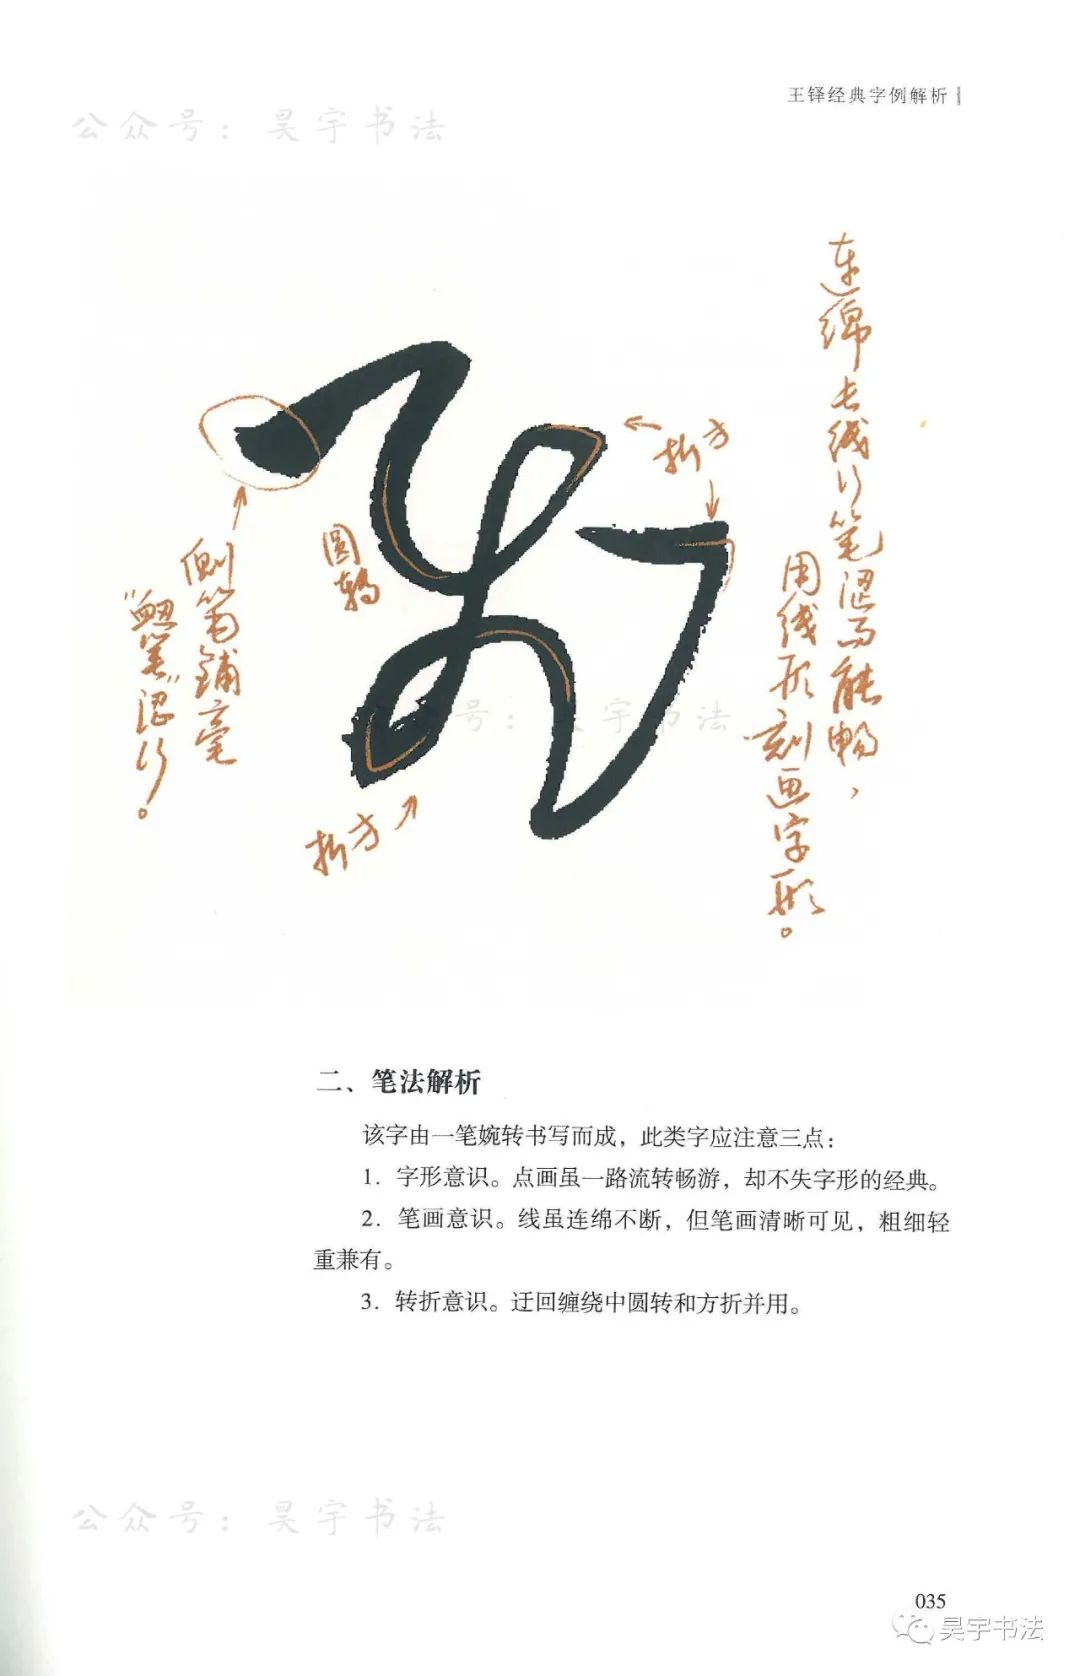 王铎经典字例解析
公众号：昊宇书法
连绵长线行笔涩而能畅，
用线形刻画字形。
方折
圆转
侧笔铺毫
笔”涩行。
方折
公众号：昊宇书法
二、笔法解析
该字由一笔婉转书写而成，此类字应注意三点：
1. 字形意识。点画虽一路流转畅游，却不失字形的经典。
2. 笔画意识。线虽连绵不断，但笔画清晰可见，粗细轻
重兼有。
3. 转折意识。迂回缠绕中圆转和方折并用。
公众号：昊宇书法
035
昊宇书法